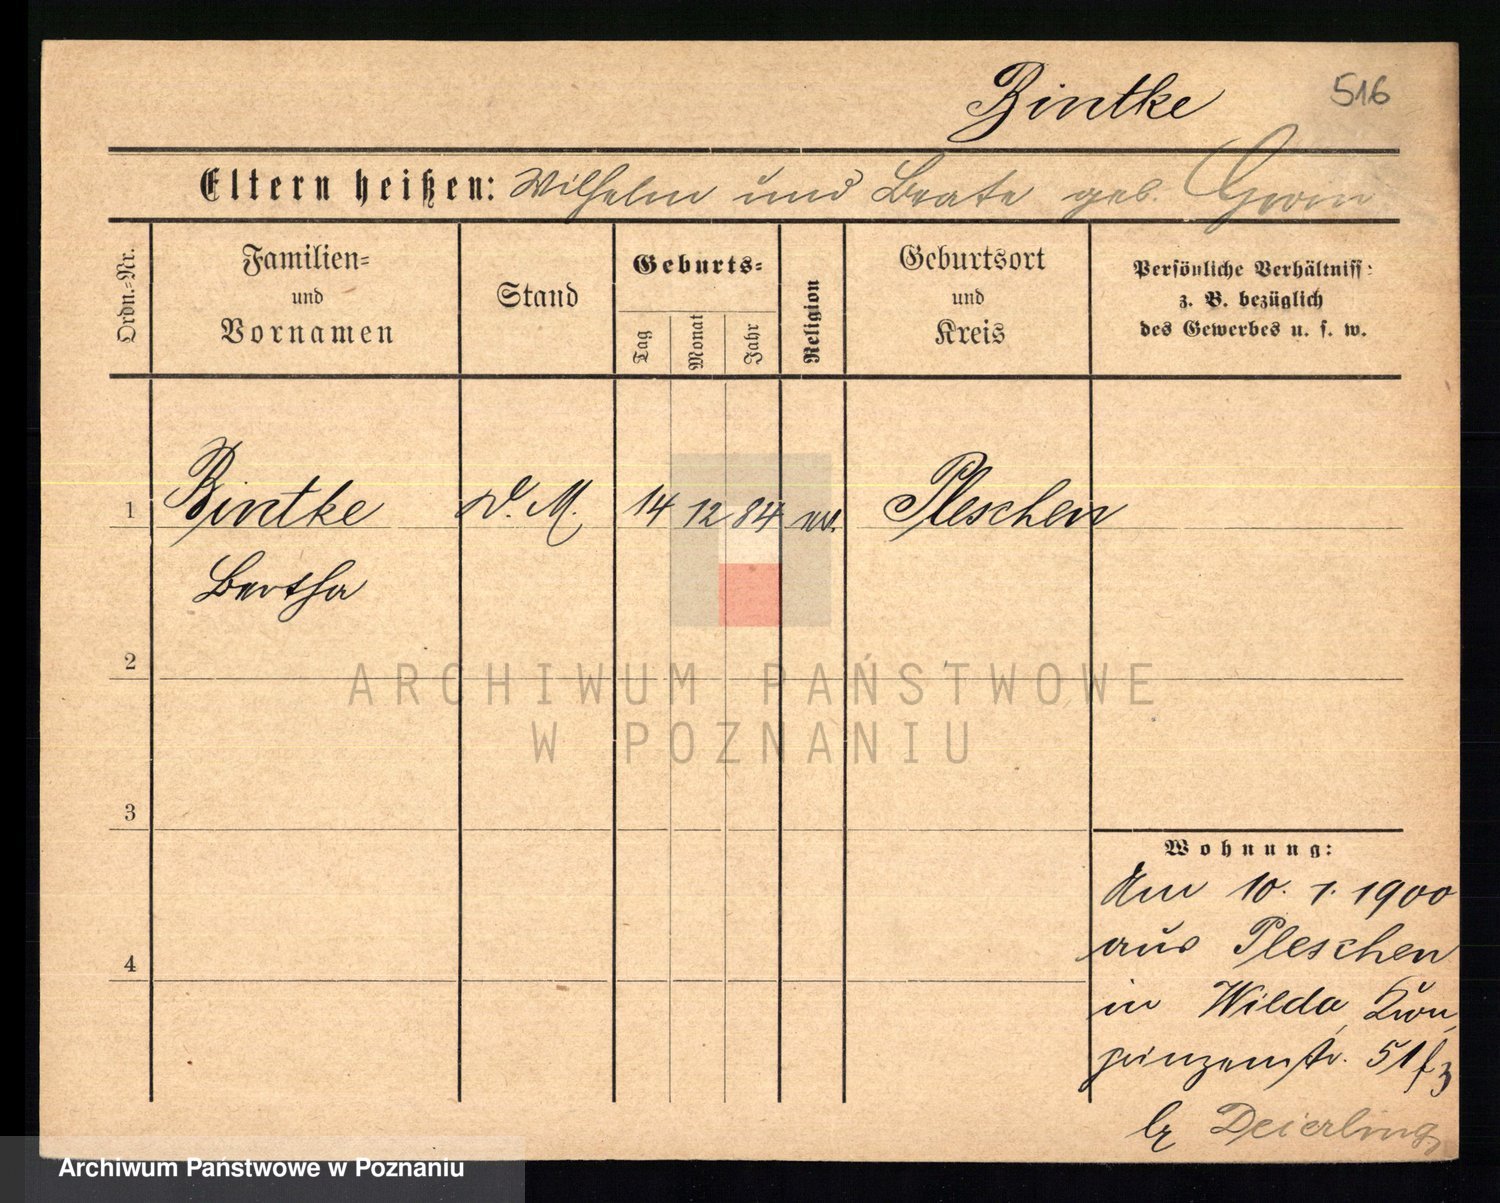 Bintke 516
Eltern heißen: Wilhelm und Beate geb.
Ordn.=Nr.
Familien=
und
Vornamen
Stand
Geburts=
Tag
Monat
Jahr
Religion
Geburtsort
und
Kreis
Persönliche Verhältniss:
z. B. bezüglich
des Gewerbes u. s. w.
1 Bintke D. M. 14 12 84 ev. Pleschen
Bertha
2
ARCHIWUM PAŃSTWOWE
W POZNANIU
3
Wohnung:
Am 10. 1. 1900
aus Pleschen
4
in Wilda, Kron
prinzenstr. 51
bz Deierling
Archiwum Państwowe w Poznaniu